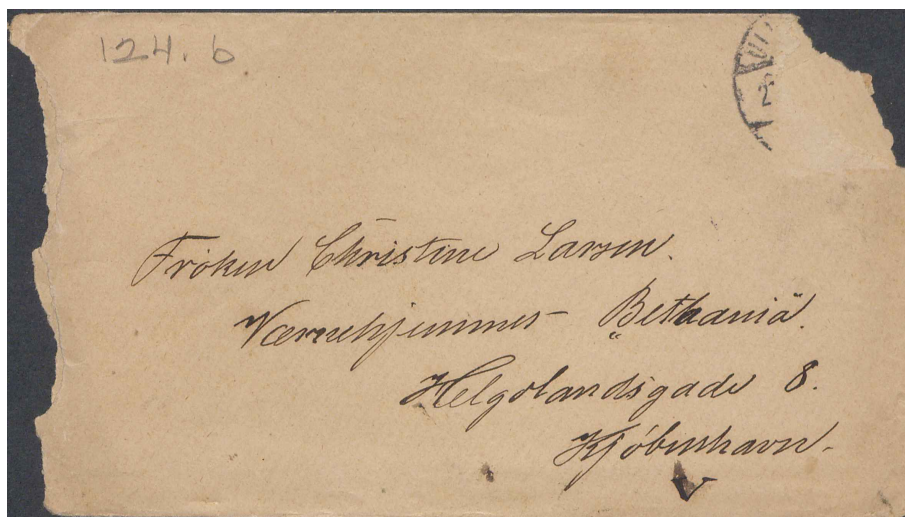 124.b
Fröken Christine Larsen.
Værnehjemmet „Bethania"
Helgolandsgade 8.
Kjóbenhavn.
V